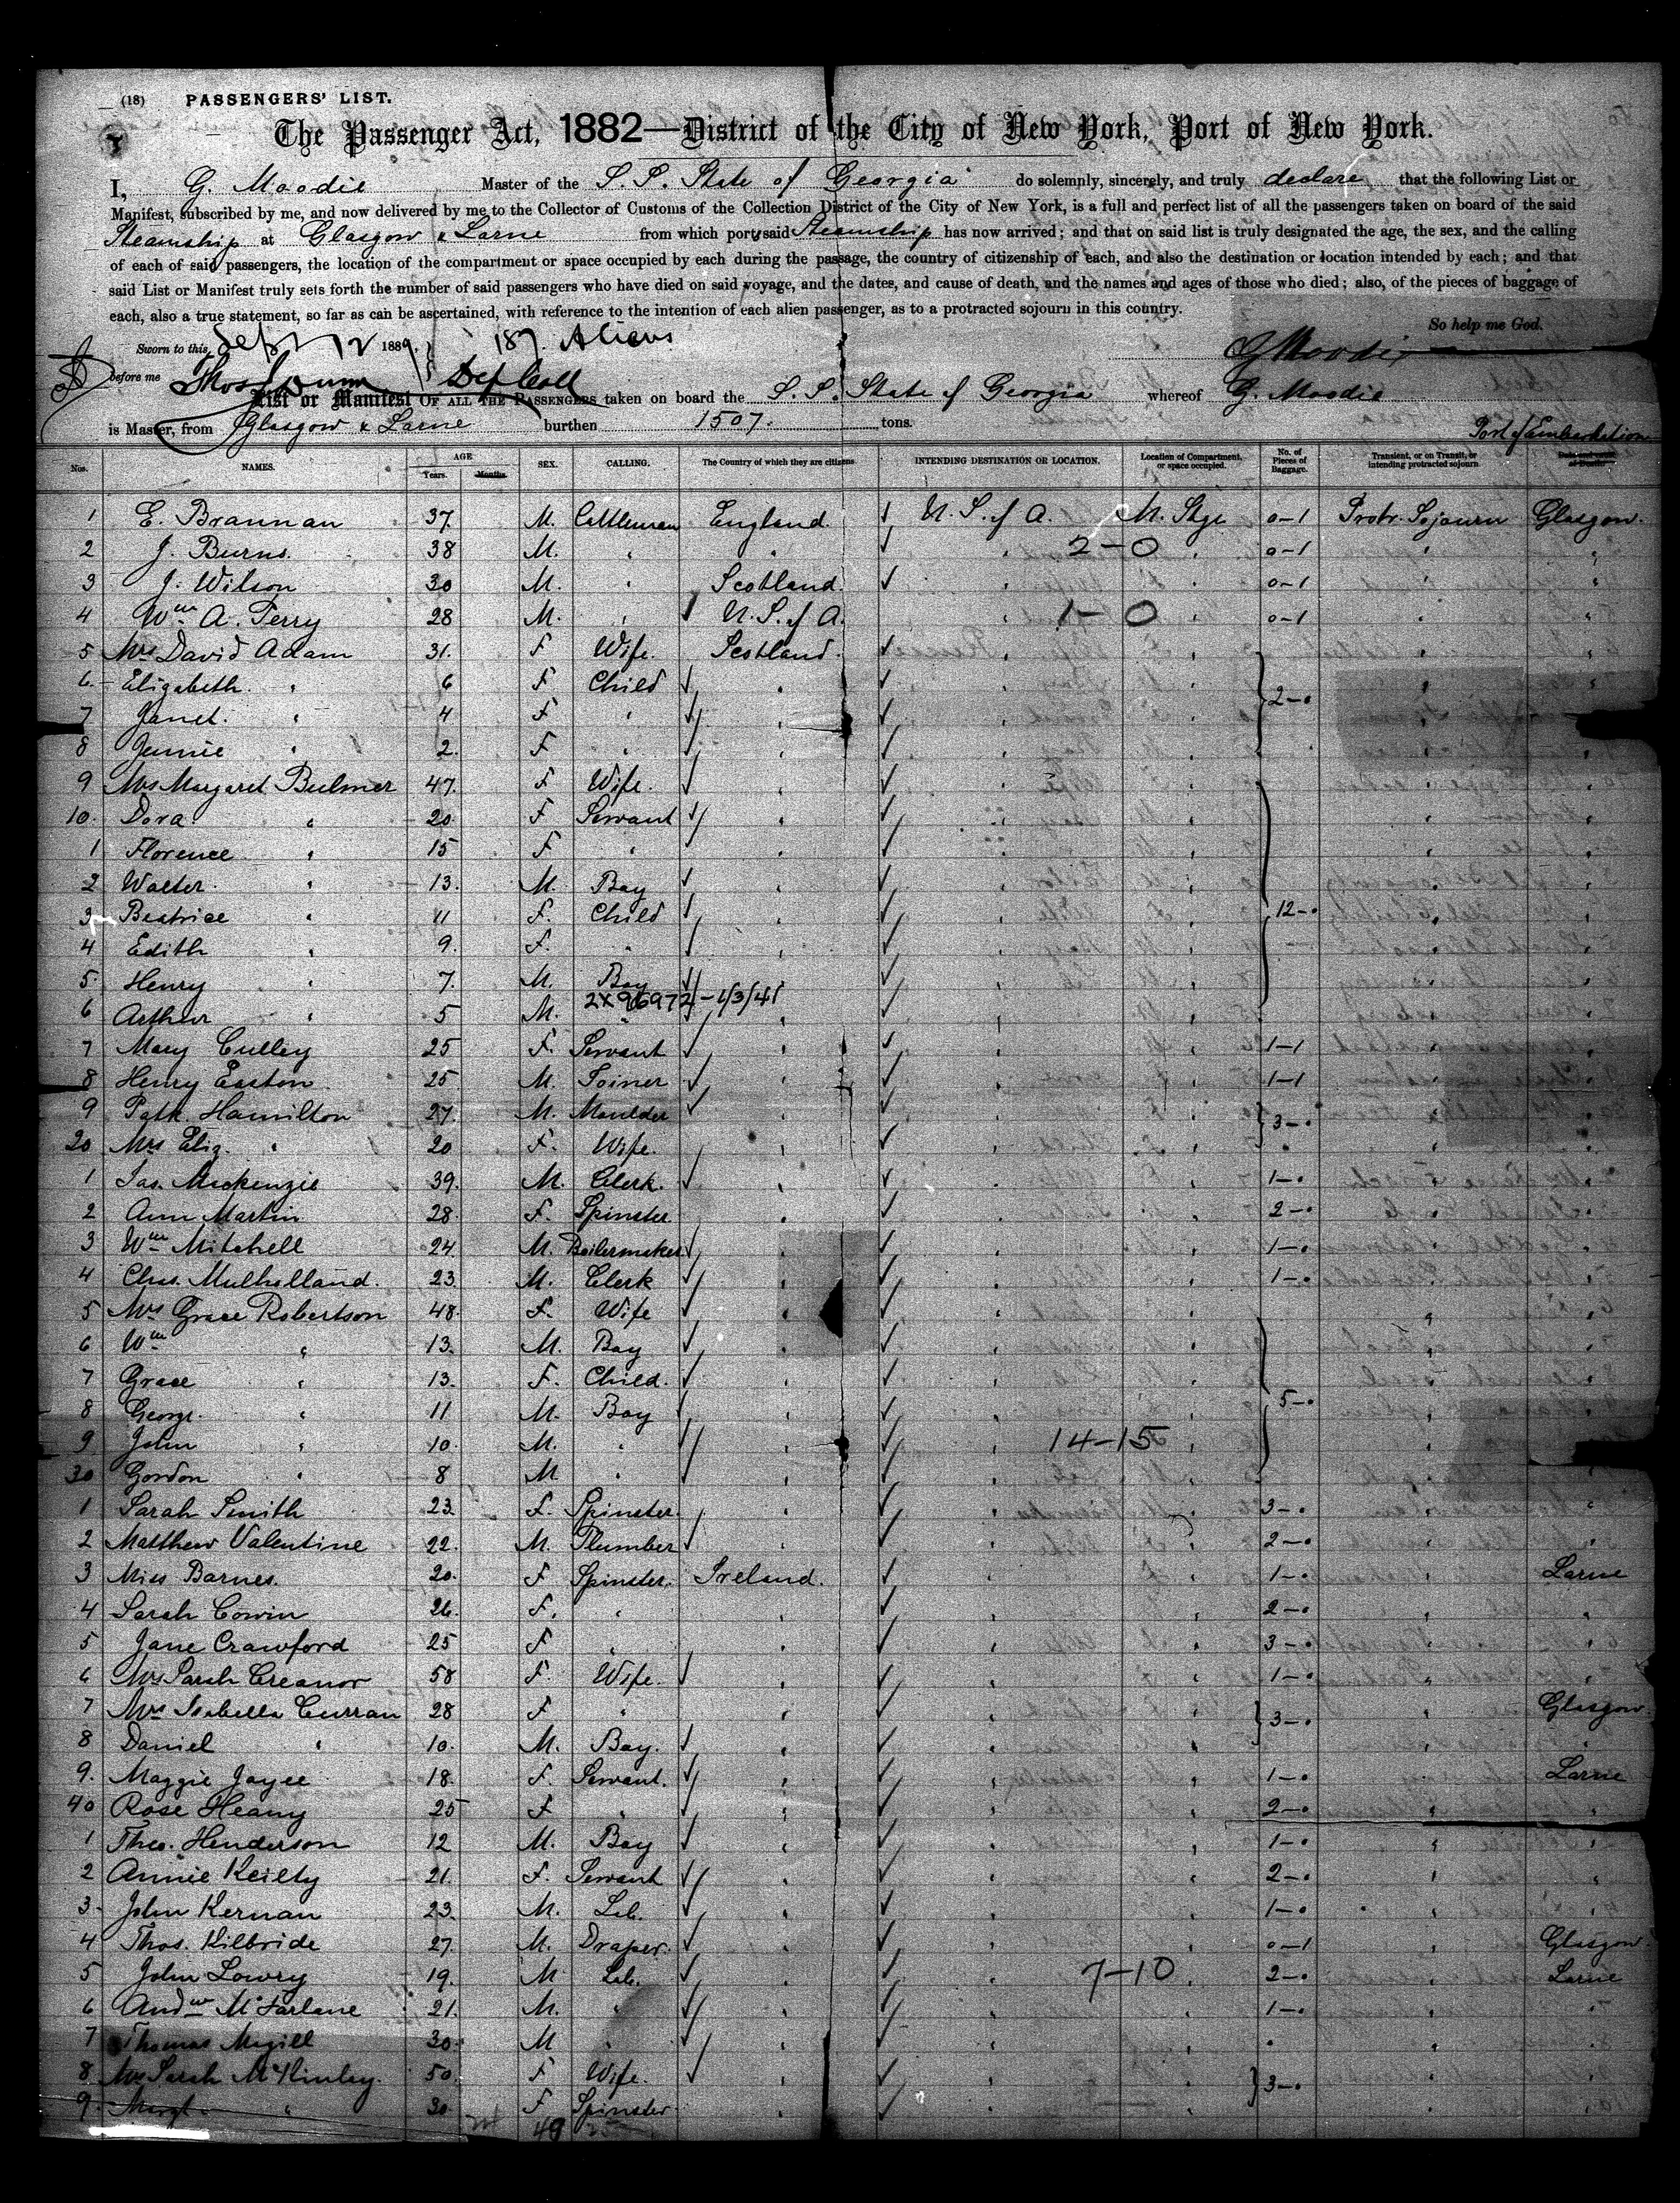 (18) PASSENGERS' LIST.
The Passenger Act, 1882—District of the City of New York, Port of New York.
I, G. Moodie Master of the S.S. State of Georgia do solemnly, sincerely, and truly declare that the following List or
Manifest, subscribed by me, and now delivered by me to the Collector of Customs of the Collection District of the City of New York, is a full and perfect list of all the passengers taken on board of the said
Steamship at Glasgow & Larne from which port said Steamship has now arrived; and that on said list is truly designated the age, the sex, and the calling
of each of said passengers, the location of the compartment or space occupied by each during the passage, the country of citizenship of each, and also the destination or location intended by each; and that
said List or Manifest truly sets forth the number of said passengers who have died on said voyage, and the dates, and cause of death, and the names and ages of those who died; also, of the pieces of baggage of
each, also a true statement, so far as can be ascertained, with reference to the intention of each alien passenger, as to a protracted sojourn in this country.
So help me God.
Sworn to this Sept 12 1889. 187 Aliens
GMoodie
before me Thos Dunn Dep Coll
List or Manifest OF ALL THE PASSENGERS taken on board the S.S. State of Georgia whereof G. Moodie
is Master, from Glasgow & Larne burthen 1507. tons.
Port of Embarkation
Nos. NAMES. AGE Years. Months. SEX. CALLING. The Country of which they are citizens. INTENDING DESTINATION OR LOCATION. Location of Compartment, or space occupied. No. of Pieces of Baggage. Transient, or on Transit, or intending protracted sojourn. Date and cause of Death.
1 E. Brannan 37 M. Cattleman England. U.S. of A. M. Stge 0-1 Protr. Sojourn Glasgow.
2 J. Burns. 38 M. " " " 2-0 " 0-1 " "
3 J. Wilson 30 M. " Scotland. " " 0-1 " "
4 Wm A. Terry 28 M. " U.S. of A. " 1-0 " 0-1 " "
5 Mrs David Adam 31. F Wife. Scotland. " " " "
6 Elizabeth " 6 F Child " " " 2-0 " "
7 Janet. " 4 F " " " " " "
8 Jennie " 2. F " " " " " "
9 Mrs Margaret Bulmer 47. F Wife. " " " " "
10. Dora " 20 F Servant " " " " "
1 Florence " 15 F " " " " " "
2 Walter. " 13. M. Boy " " " " "
3 Beatrice " 11 F. Child " " " 12-0 " "
4 Edith " 9. F. " " " " " "
5. Henry " 7. M. Boy " " " " "
2X96972-1/3/41
6 Arthur " 5 M. " " " " " "
7 Mary Culley 25 F. Servant " " " 1-1 " "
8 Henry Easton 25 M. Joiner " " " 1-1 " "
9 Patk. Hamilton 27. M. Moulder " " " 3-0 " "
20 Mrs Eliz. " 20 F. Wife. " " " " "
1 Jas. Mackenzie 39. M. Clerk. " " " 1-0 " "
2 Ann Martin 28 F. Spinster " " " 2-0 " "
3 Wm Mitchell 24 M. Boilermaker " " " 1-0 " "
4 Chas. Mulholland. 23 M. Clerk " " " 1-0 " "
5 Mrs Grace Robertson 48. F. Wife " " " " "
6 Wm " 13. M. Boy " " " " "
7 Grace " 13. F. Child. " " " " "
8 George. " 11 M. Boy " " " 5-0 " "
9 John " 10. M. " " " 14-15 " " "
30 Gordon " 8 M " " " " " "
1 Sarah Smith 23 F. Spinster. " " " 3-0 " "
2 Matthew Valentine 22. M. Plumber " " " 2-0 " "
3 Miss Barnes. 20. F Spinster. Ireland. " " 1-0 " Larne
4 Sarah Cowin 26. F. " " " " 2-0 " "
5 Jane Crawford 25 F " " " " 3-0 " "
6 Mrs Sarah Creanor 58 F. Wife. " " " 1-0 " "
7 Mrs Isabella Curran 28 F " " " " 3-0 " Glasgow
8 Daniel " 10. M. Boy. " " " " "
9. Maggie Joyce 18. F. Servant. " " " 1-0 " Larne
40 Rose Heany 25 F " " " " 2-0 " "
1 Theo. Henderson 12 M. Boy " " " 1-0 " "
2 Annie Keilty 21. F. Servant " " " 2-0 " "
3. John Kernan 23. M. Lab. " " " 1-0 " "
4 Thos. Kilbride 27. M. Draper. " " " 0-1 " Glasgow.
5 John Lowry 19. M Lab. " " 7-10 2-0 " Larne
6 Andw McFarlane 21. M. " " " " 1-0 " "
7 Thomas Magill 30. M " " " " " "
8 Mrs Sarah McKinley. 50. F Wife. " " " 3-0 " "
9. Margt " 30. F Spinster " " " " "
49